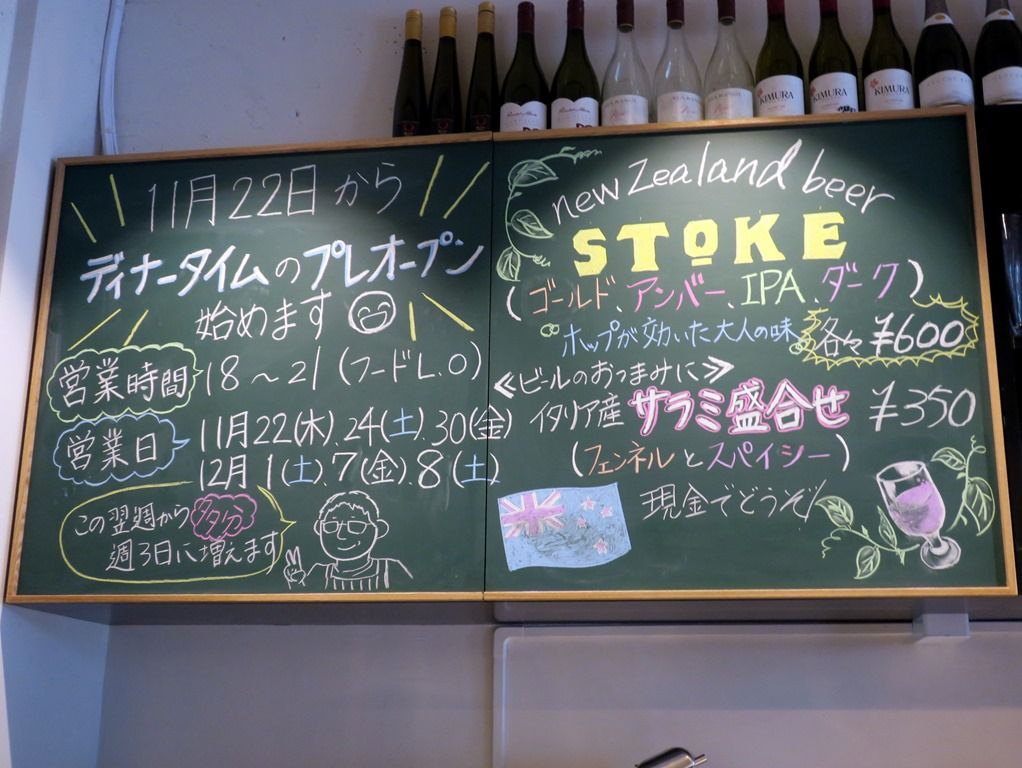 11月22日から
ディナータイムのプレオープン
始めます
営業時間 18～21(フードL.O)
営業日 11月22(木).24(土).30(金)
12月1(土).7(金).8(土)
この翌週から多分
週3日に増えます
new Zealand beer
STOKE
(ゴールド、アンバー、IPA、ダーク)
ホップが効いた大人の味 各々¥600
≪ビールのおつまみに≫
イタリア産 サラミ盛合せ ¥350
(フェンネルとスパイシー)
現金でどうぞ!
KIMURA
KIMURA
KIMURA